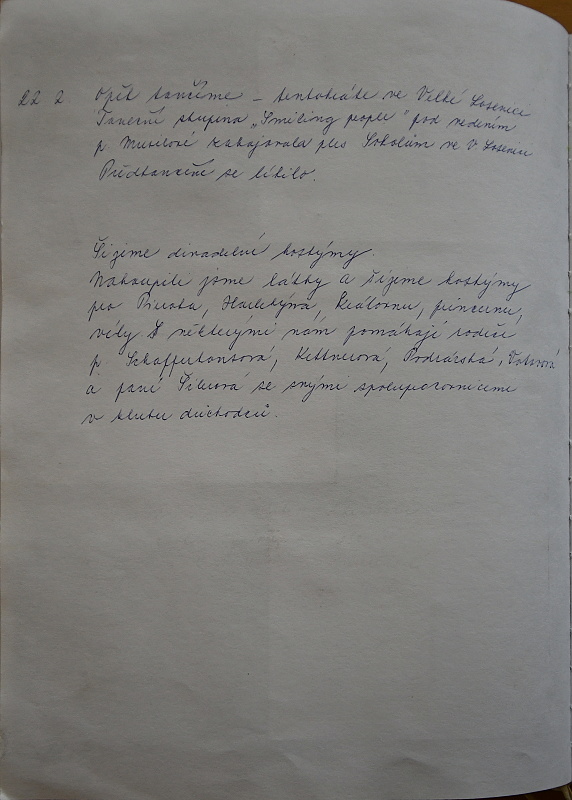 22 2 Opět tančíme – tentokráte ve Velké Losenice
Taneční skupina „Smiling people" pod vedením
p. Musilové zahajovala ples Sokolům ve V Losenici
Předtančení se líbilo.
Šijeme divadelní kostýmy.
Nakoupili jsme látky a šijeme kostýmy
pro Pierota, Harlekýna, královnu, princeznu,
víly S některými nám pomáhají rodiče
p. Kettnerová,
a paní se svými spolupracovnicemi
v klubu důchodců.